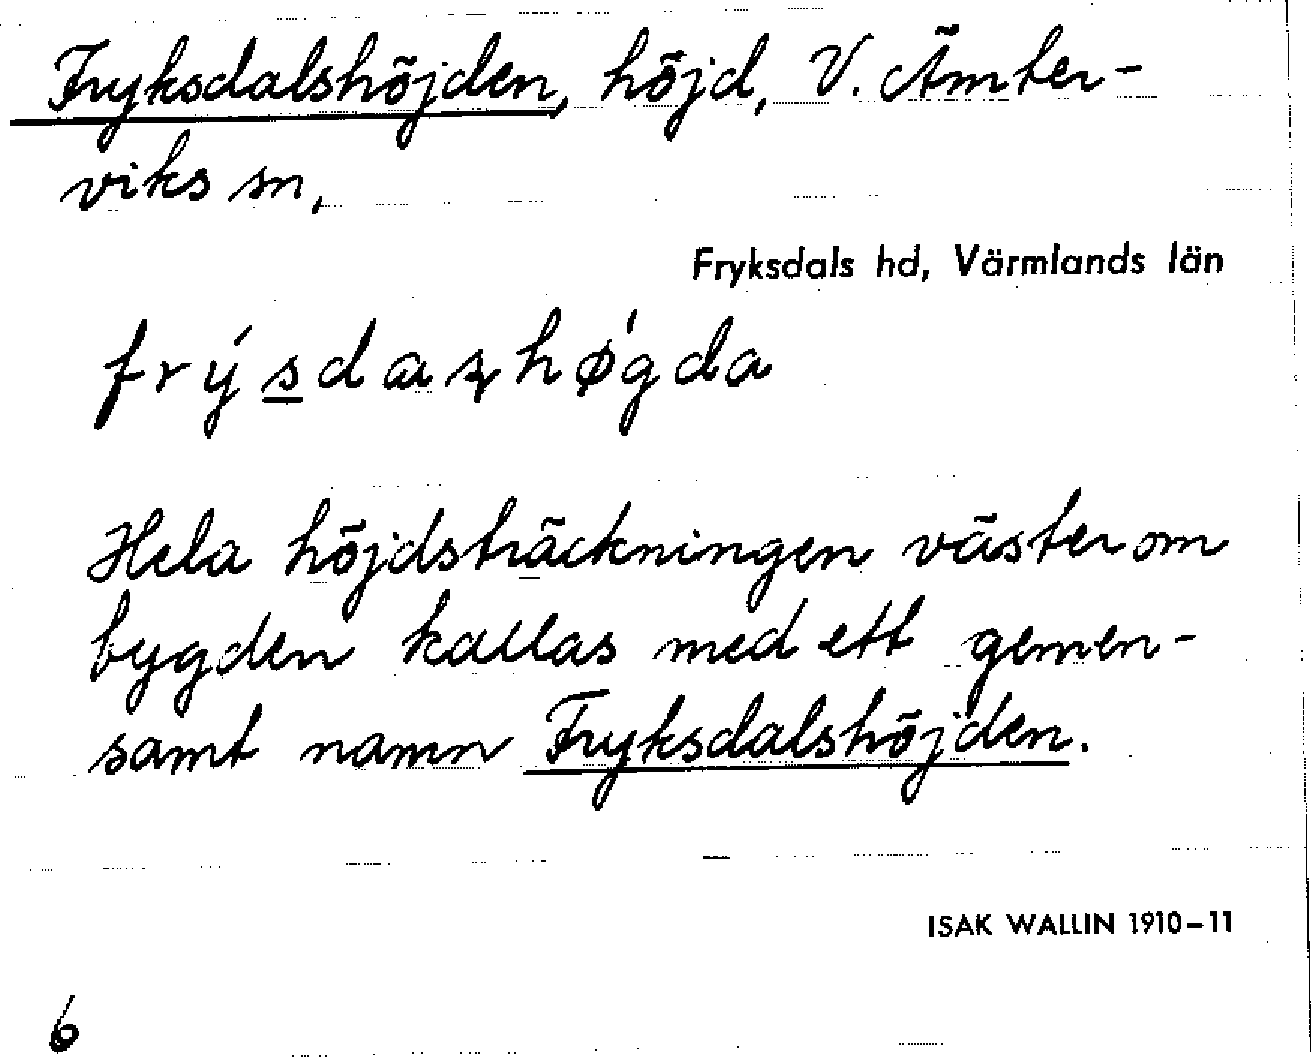 Fryksdalshöjden, höjd, V. Ämter-
viks sn,
Fryksdals hd, Värmlands län
Hela höjdsträckningen väster om
bygden kallas med ett gemen-
samt namn Fryksdalshöjden.
ISAK WALLIN 1910-11
6